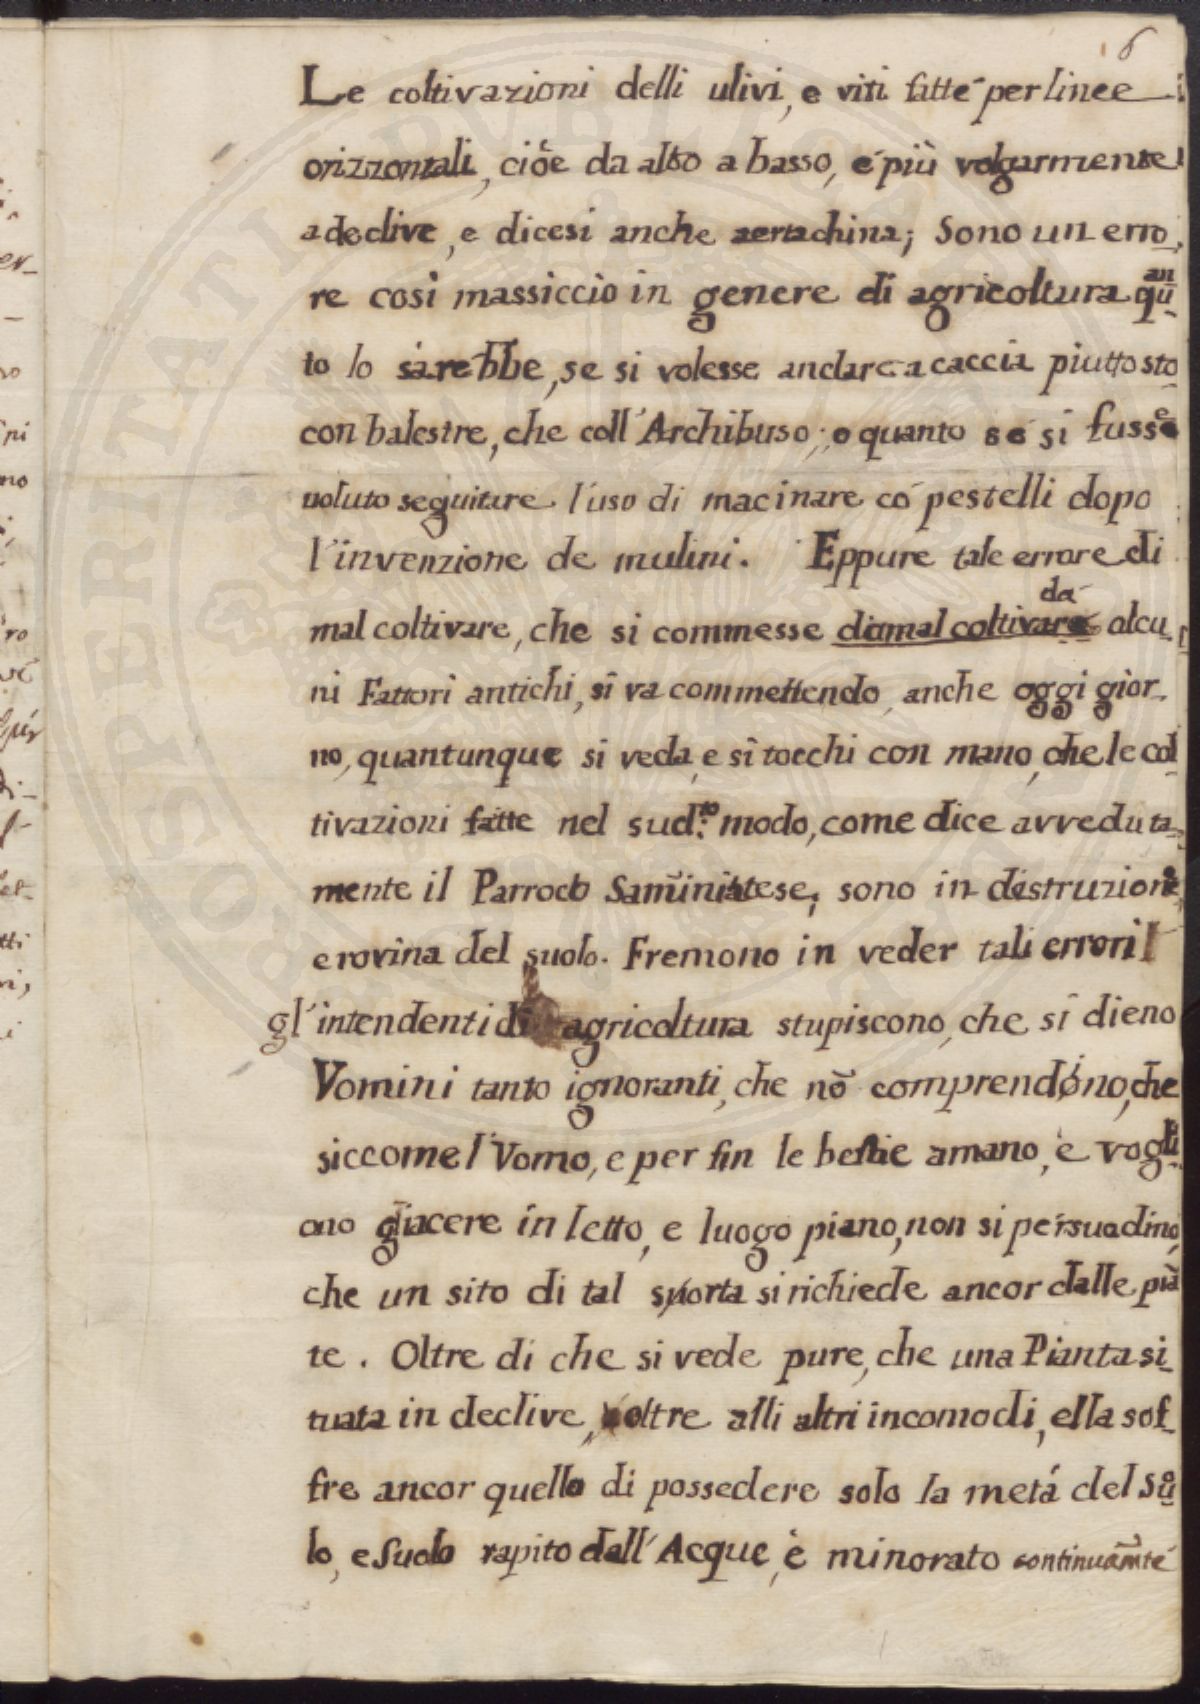 6
Le coltivazioni delli ulivi, e viti fatte per linee
orizzontali, cioè da alto a basso, e più volgarmente
a declive, e dicesi anche a ertachina; Sono un erro_
re così massiccio in genere di agricoltura quan_
to lo sarebbe, se si volesse andare a caccia piuttosto
con balestre, che coll'Archibuso; o quanto se si fusse
voluto seguitare l'uso di macinare co' pestelli dopo
l'invenzione de mulini. Eppure tale errore di
mal coltivare, che si commesse di mal coltivare da alcu_
ni Fattori antichi, si va commettendo anche oggi gior_
no, quantunque si veda, e si tocchi con mano, che le col
tivazioni fatte nel sud.to modo, come dice avveduta_
mente il Parroco Samĩniatese, sono in distruzione
e rovina del suolo. Fremono in veder tali errori
gl'intendenti di agricoltura stupiscono, che si dieno
Vomini tanto ignoranti, che nõ comprendóno, che
siccome l'Vomo, e per fin le bestie amano, e vogli
ono giacere in letto, e luogo piano, non si persuadino,
che un sito di tal sorta si richiede ancor dalle piã
te. Oltre di che si vede pure, che una Pianta si_
tuata in declive, oltre alli altri incomodi, ella sof_
fre ancor quello di possedere solo la metá del Suo_
lo, e Suolo rapito dall'Acque, è minorato continuam̃te
PROSPERITATI PUBLICAE